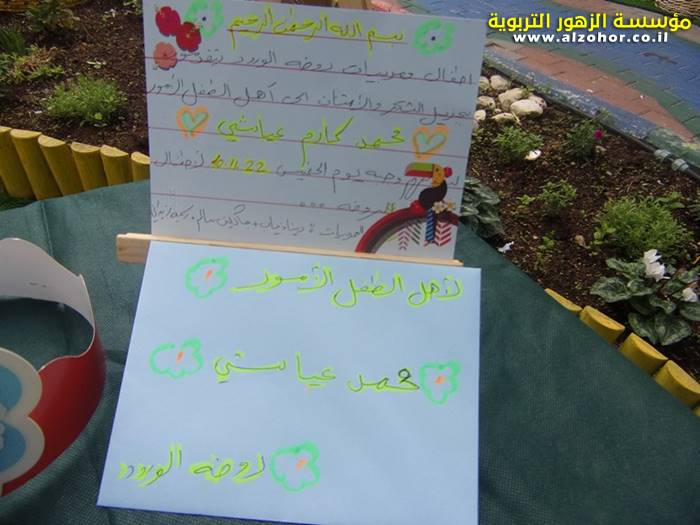 مؤسسة الزهور التربوية
www.alzohor.co.il
بسم الله الرحمن الرحيم
اطفال ومربيات روضة الورود
بجزيل الشكر والأمتنان الى أهل الطفل الأمور
محمد كارم عياشي
وجبة يوم الخميس 22 لأطفال
الروضة ...
المربيات :
لأهل الطفل الأمور
محمد عياشي
روضة الورود